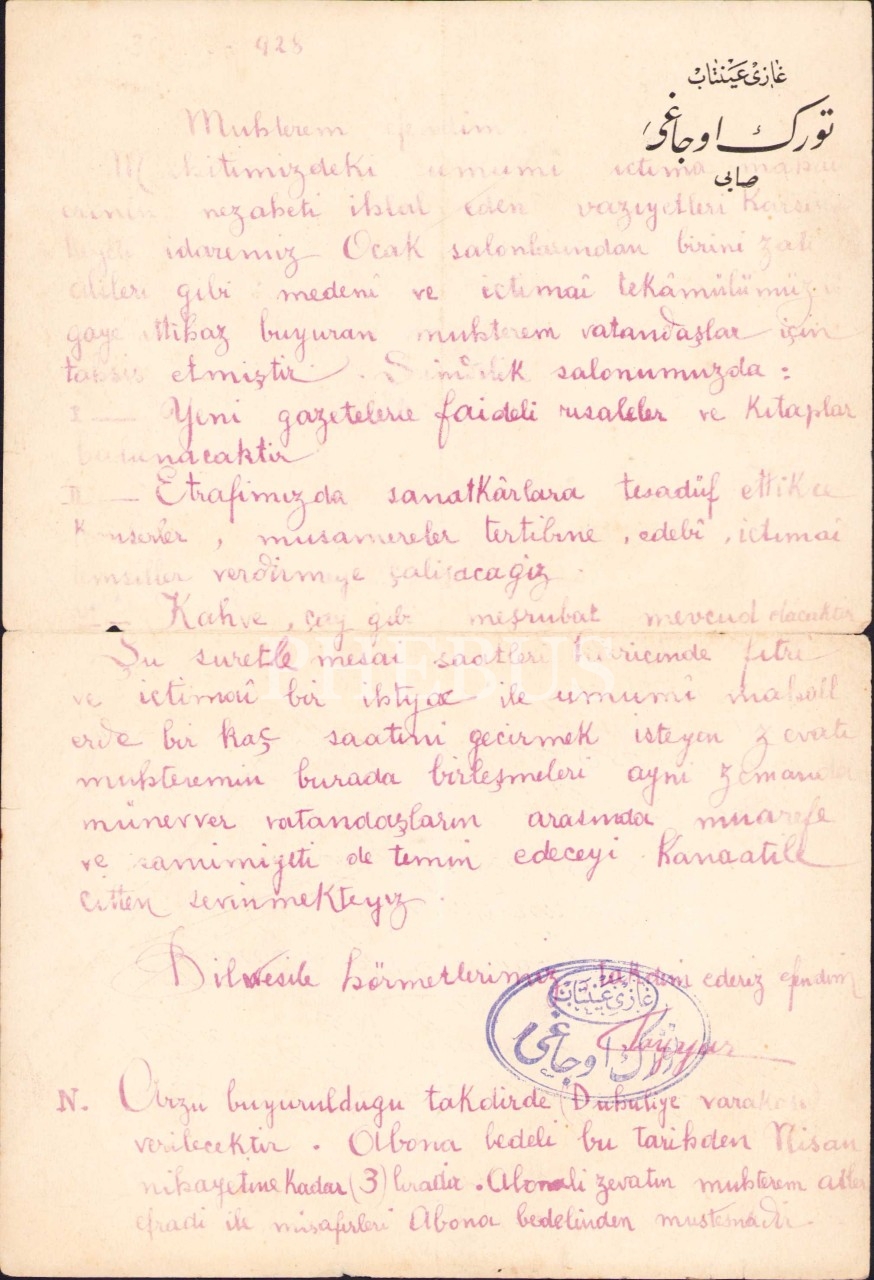 928
غازی عینتاب
تورك اوجاغی
صابی
Muhterem efendim
Muhitimizdeki umumî ictima mahal
erinin nezaheti ihlal eden vaziyetleri karsi
heyeti idaremiz Ocak salonlarından birini zati
âlileri gibi medenî ve ictimaî tekâmülümüzü
gaye ittihaz buyuran muhterem vatandaşlar için
tahsis etmiştir. Şimdilik salonumuzda :
I — Yeni gazetelerle faideli risaleler ve kitaplar
bulunacaktir
II — Etrafimızda sanatkârlara tesadüf ettikce
konserler, musamereler tertibine, edebî, ictimaî
verdirmeye çalişacağız.
— Kahve, çay gibi meşrubat mevcud olacaktır
Şu suretle mesai saatleri haricinde fitrî
ve ictimaî bir ihtiyac ile umumî mahall
erde bir kaç saatini gecirmek isteyen zevatı
muhteremin burada birleşmeleri ayni zemanda
münevver vatandaşların arasında muarefe
ve samimiyeti de temin edeceyi kanaatile
citten sevinmekteyiz.
Bilvesile hörmetlerimizi takdim ederiz efendim
غازی عینتاب
تورك اوجاغی
N. Arzu buyuruldugu takdirde (Duhuliye varakası
verilecektir. Abona bedeli bu tarihden Nisan
nihayetine kadar (3) liradır. Abonali zevatın muhterem aile
efradi ile misafirleri Abona bedelinden mustesnadir.
PHEBUS